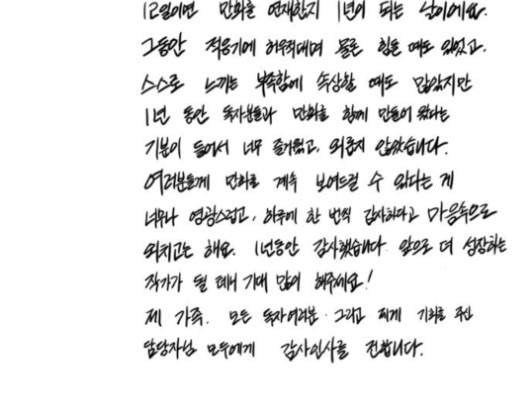 12일이면 만화를 연재한지 1년이 되는 날이에요.
그동안 적응기에 허우적대며 물론 힘들 때도 있었고.
스스로 느끼는 부족함에 속상할 때도 많았지만
1년 동안 독자분들과 만화를 함께 만들어 왔다는
기분이 들어서 너무 즐거웠고, 외롭지 않았습니다.
여러분들께 만화를 계속 보여드릴 수 있다는 게
너무나 영광스럽고, 하루에 한 번씩 감사하다고 마음속으로
외치고는 해요. 1년동안 감사했습니다. 앞으로 더 성장하는
작가가 될 테니 기대 많이 해주세요!
제 가족. 모든 독자여러분. 그리고 제게 기회를 주신
담당자님 모두에게 감사인사를 전합니다.